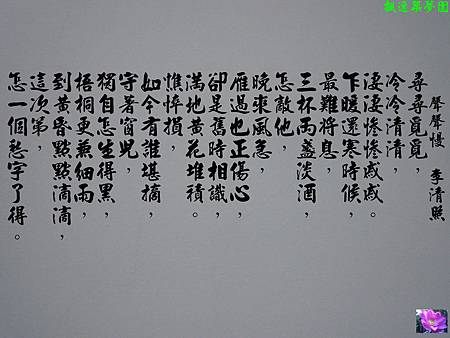 飄逸尋夢園
聲聲慢 李清照
尋尋覓覓，
冷冷清清，
淒淒慘慘戚戚。
乍暖還寒時候，
最難將息，
三杯兩盞淡酒，
怎敵他，
晚來風急，
雁過也正傷心，
卻是舊時相識，
滿地黃花堆積。
憔悴損，
如今有誰堪摘，
守著窗兒，
獨自怎生得黑，
梧桐更兼細雨，
到黃昏點點滴滴，
這次第，
怎一個愁字了得。